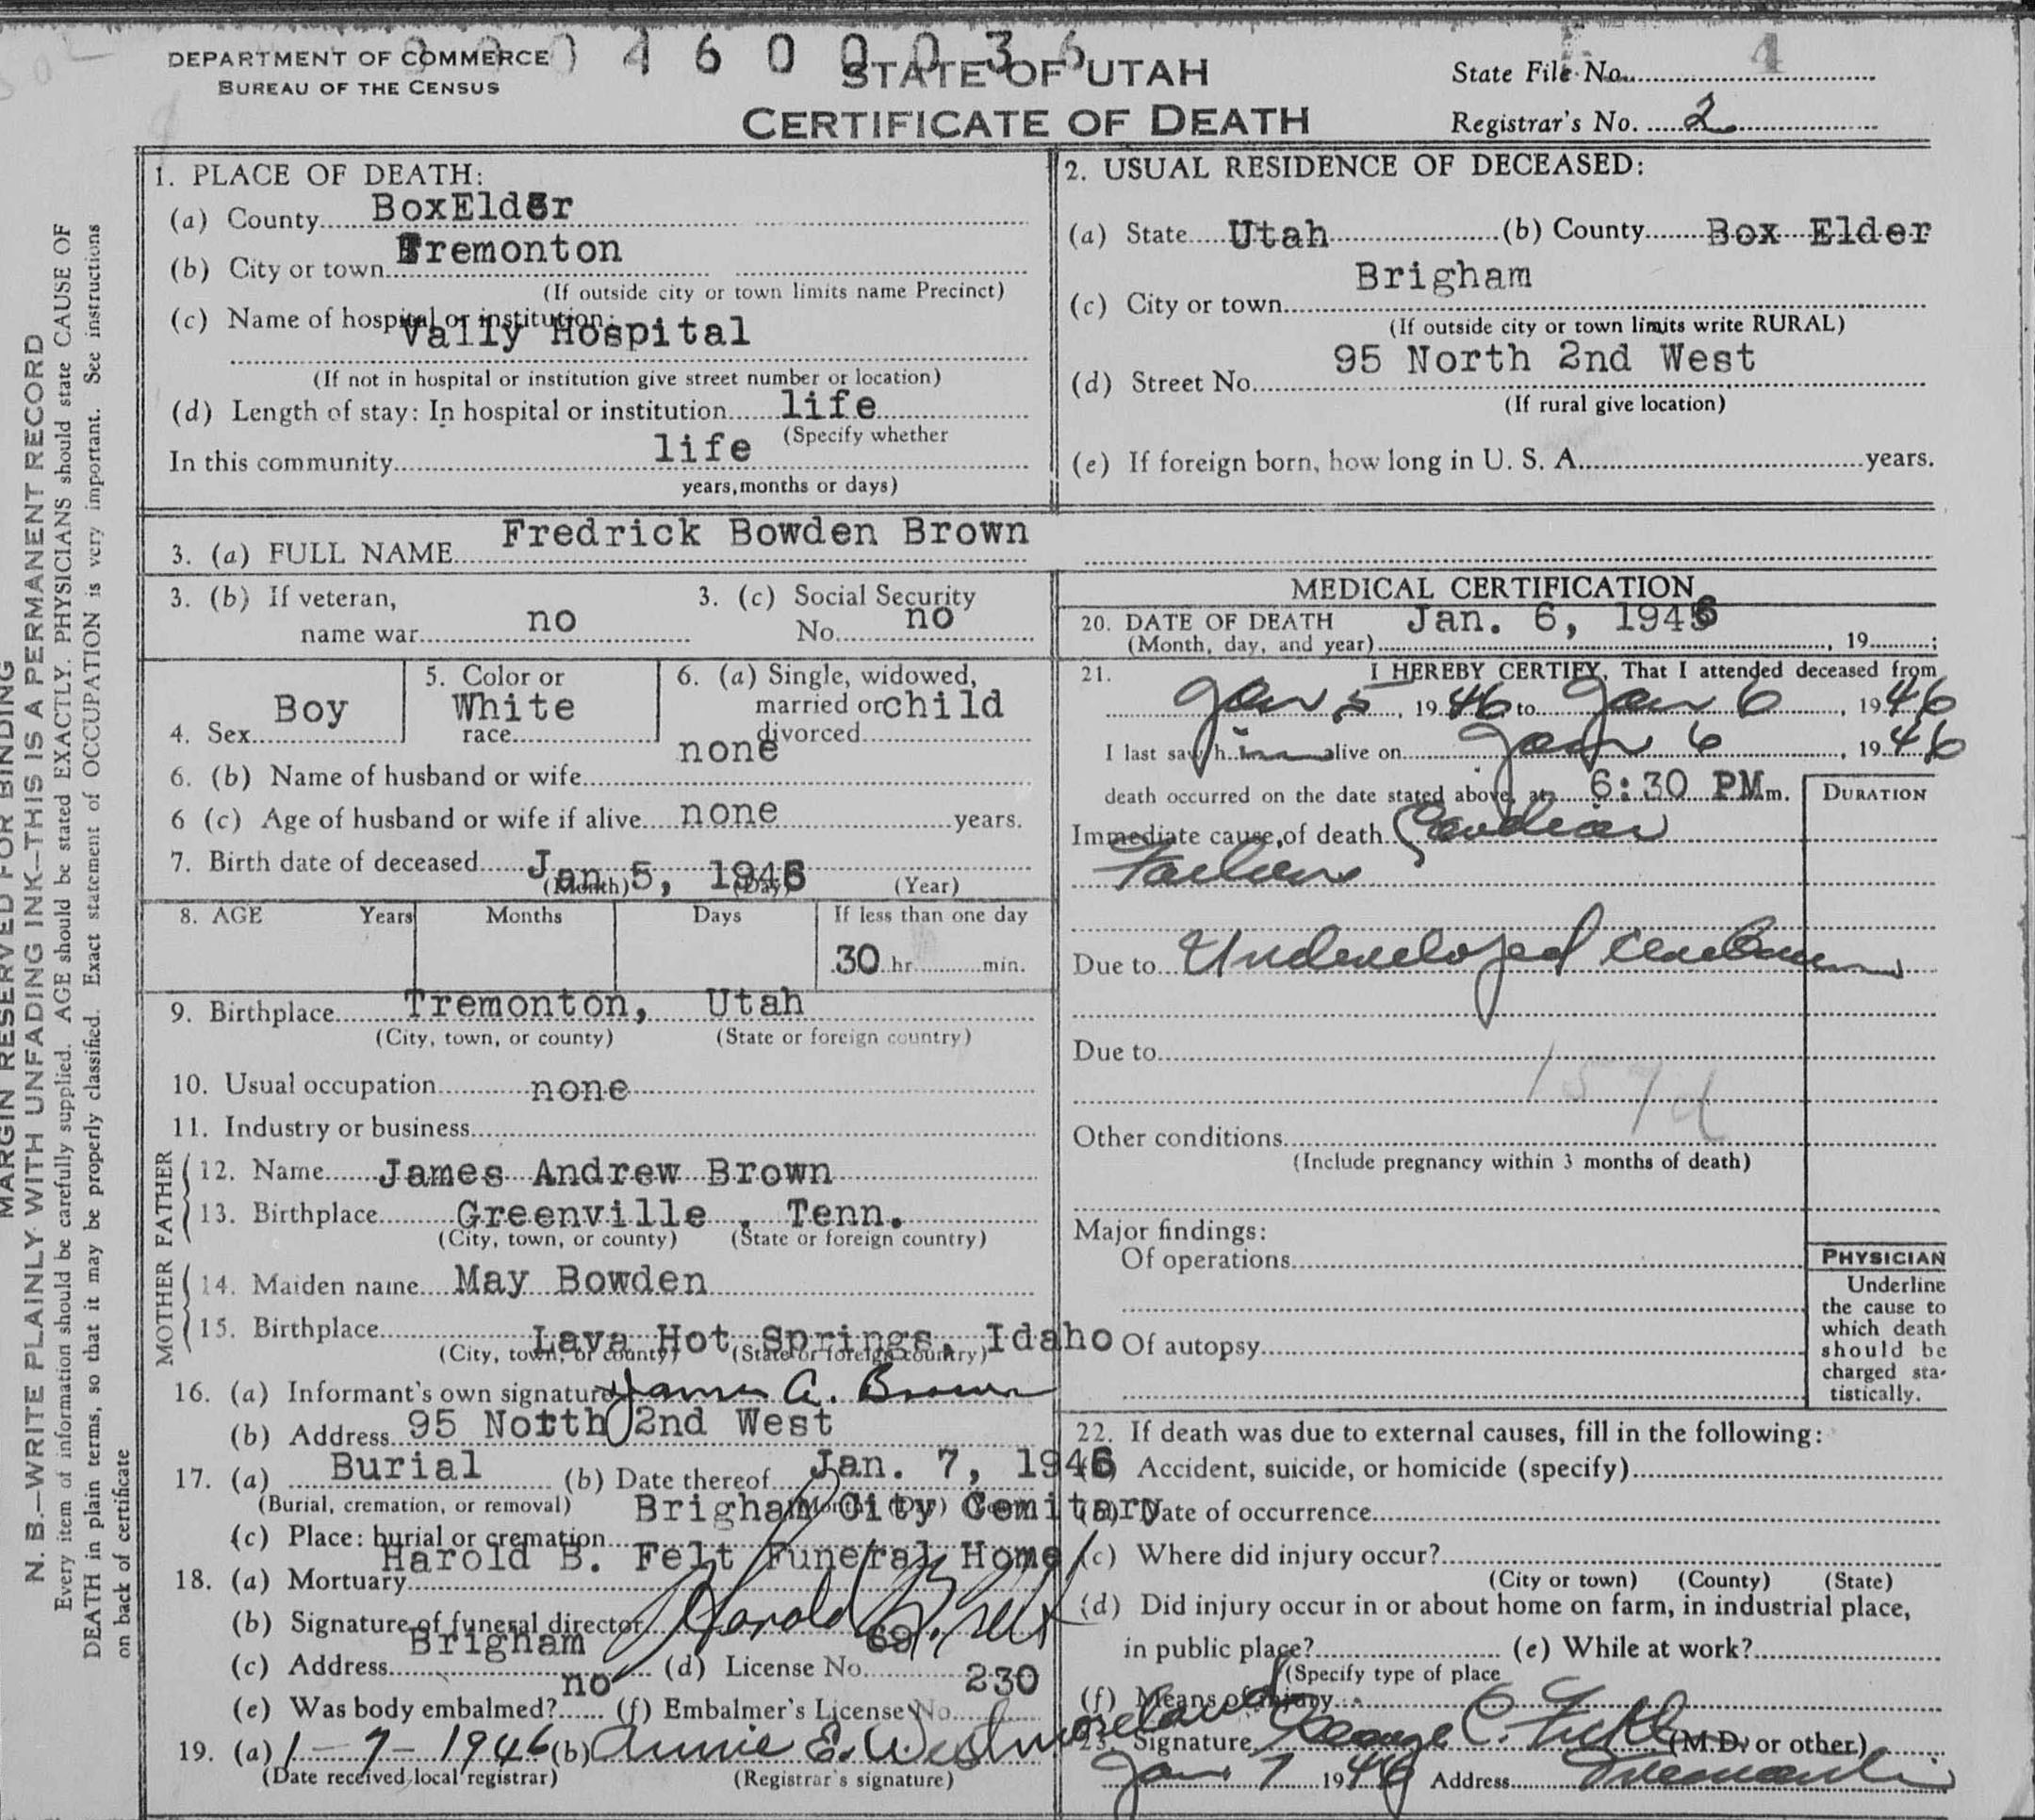 DEPARTMENT OF COMMERCE
BUREAU OF THE CENSUS
4600036
STATE OF UTAH
CERTIFICATE OF DEATH
State File No. 4
Registrar's No. 2
MARGIN RESERVED FOR BINDING
N. B.—WRITE PLAINLY WITH UNFADING INK—THIS IS A PERMANENT RECORD
Every item of information should be carefully supplied. AGE should be stated EXACTLY. PHYSICIANS should state CAUSE OF
DEATH in plain terms, so that it may be properly classified. Exact statement of OCCUPATION is very important. See instructions
on back of certificate
1. PLACE OF DEATH:
(a) County BoxElder
(b) City or town Tremonton
(If outside city or town limits name Precinct)
(c) Name of hospital or institution:
Vally Hospital
(If not in hospital or institution give street number or location)
(d) Length of stay: In hospital or institution life
(Specify whether
In this community life
years, months or days)
2. USUAL RESIDENCE OF DECEASED:
(a) State Utah (b) County Box Elder
(c) City or town Brigham
(If outside city or town limits write RURAL)
(d) Street No. 95 North 2nd West
(If rural give location)
(e) If foreign born, how long in U. S. A. years.
3. (a) FULL NAME Fredrick Bowden Brown
3. (b) If veteran,
name war no
3. (c) Social Security
No. no
4. Sex Boy
5. Color or
race White
6. (a) Single, widowed,
married or child
divorced
6. (b) Name of husband or wife none
6 (c) Age of husband or wife if alive none years.
7. Birth date of deceased Jan 5, 1946
(Month) (Day) (Year)
8. AGE Years Months Days If less than one day
30 hr. min.
9. Birthplace Tremonton, Utah
(City, town, or county) (State or foreign country)
10. Usual occupation none
11. Industry or business
FATHER
12. Name James Andrew Brown
13. Birthplace Greenville, Tenn.
(City, town, or county) (State or foreign country)
MOTHER
14. Maiden name May Bowden
15. Birthplace Lava Hot Springs, Idaho
(City, town, or county) (State or foreign country)
16. (a) Informant's own signature James A. Brown
(b) Address 95 North 2nd West
17. (a) Burial (b) Date thereof Jan. 7, 1946
(Burial, cremation, or removal) (Month) (Day) (Year)
(c) Place: burial or cremation Brigham City Cemitary
18. (a) Mortuary Harold B. Felt Funeral Home
(b) Signature of funeral director Harold B. Felt
(c) Address Brigham (d) License No. 69
(e) Was body embalmed? no (f) Embalmer's License No. 230
19. (a) 1-7-1946 (b) Annie E. Westmoreland
(Date received local registrar) (Registrar's signature)
MEDICAL CERTIFICATION
20. DATE OF DEATH Jan. 6, 1946
(Month, day, and year) , 19 ;
21. I HEREBY CERTIFY, That I attended deceased from
Jan 5, 1946 to Jan 6, 1946
I last saw him alive on Jan 6, 1946
death occurred on the date stated above, at 6:30 PM m.
DURATION
Immediate cause of death Cardiac
Failure
Due to Undeveloped
Due to
157d
Other conditions
(Include pregnancy within 3 months of death)
Major findings:
Of operations
Of autopsy
PHYSICIAN
Underline
the cause to
which death
should be
charged sta-
tistically.
22. If death was due to external causes, fill in the following:
(a) Accident, suicide, or homicide (specify)
(b) Date of occurrence
(c) Where did injury occur?
(City or town) (County) (State)
(d) Did injury occur in or about home on farm, in industrial place,
in public place? (e) While at work?
(Specify type of place
(f) Means of injury
23. Signature George C. (M.D. or other)
Jan 7 1946 Address Tremonton